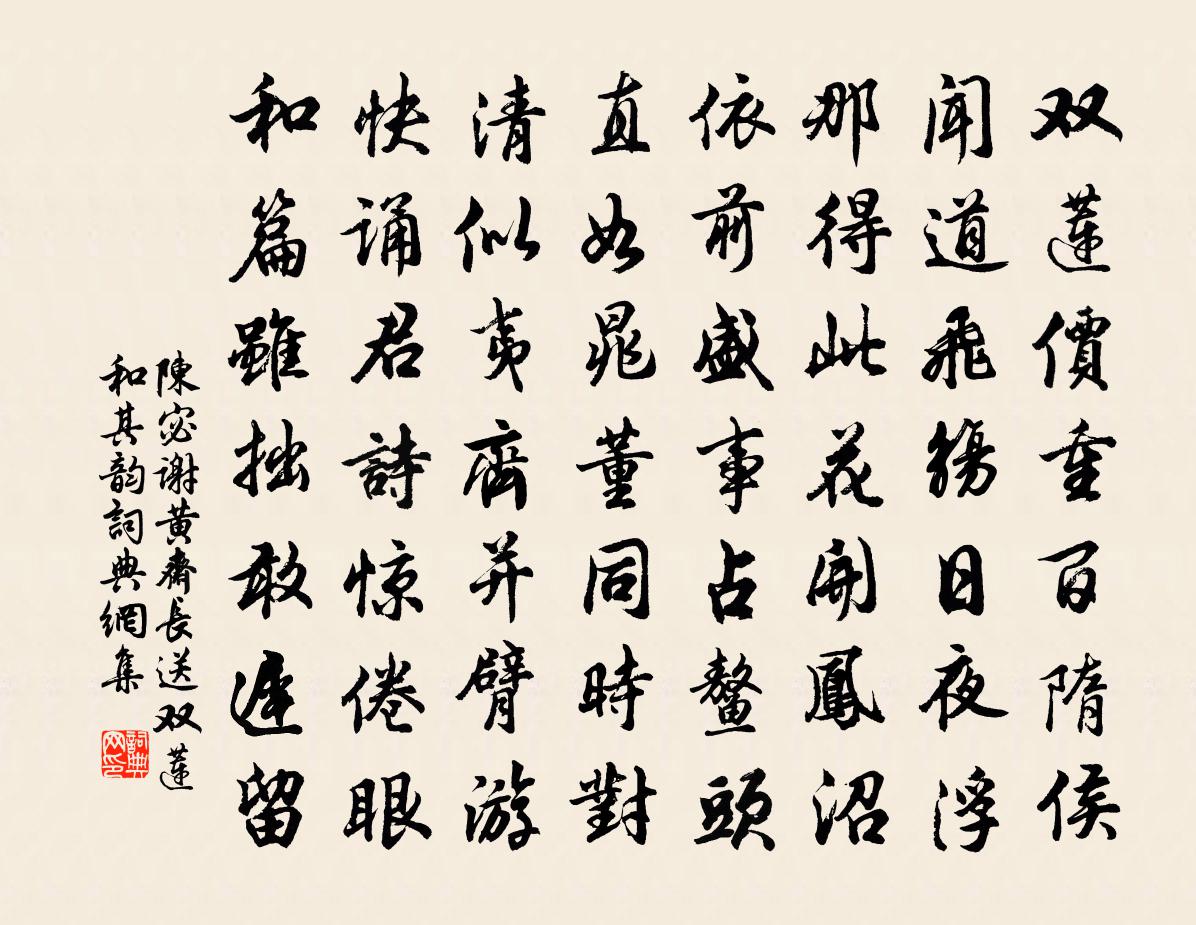 双蓮價重百隋侯
聞道飛觴日夜浮
那得此花開鳳沼
依前盛事占鰲頭
直如晁董同時對
清似夷齊并臂游
快誦君詩惊倦眼
和篇雖拙敢遲留
陳宓谢黄齋長送双蓮
和其韵詞典網集
詞典网印